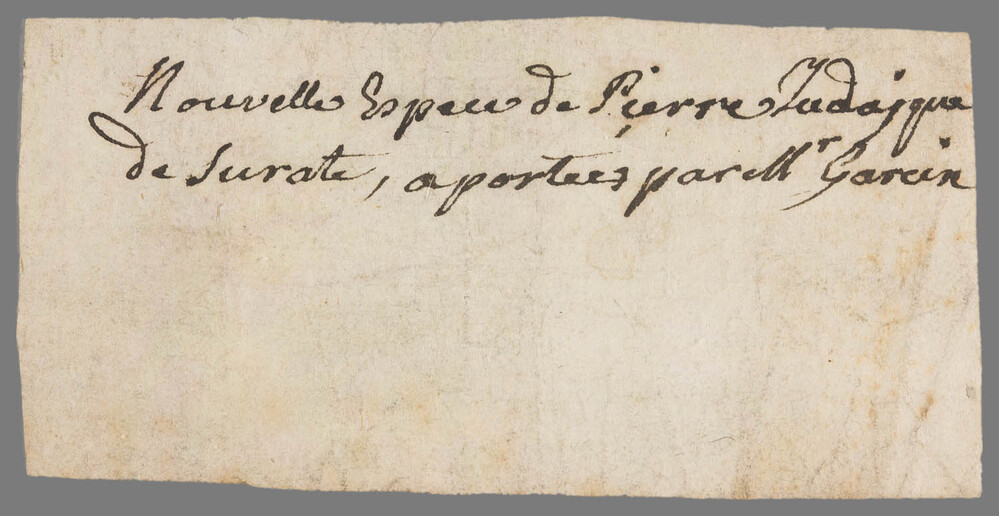 Nouvelle Espece de Pierre Judaique
de Surate, aportées par Mr Garcin